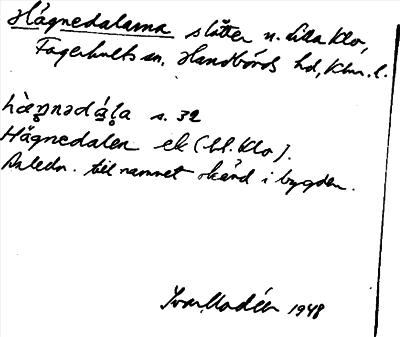 Hägnedalarna slåtter u. Lilla Klo,
Fagerhults sn, Handbörds hd, Klm. l.
s. 32
Hägnedalen ek (Ll. Klo).
Anledn. till namnet okänd i bygden.
Ivar Modéer 1948